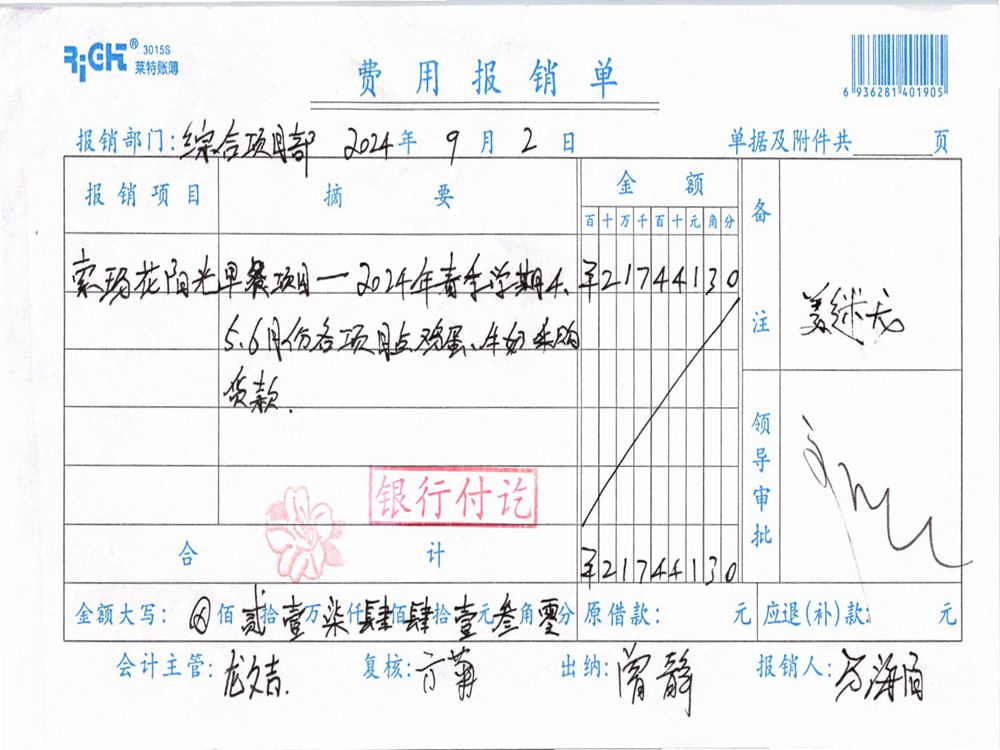 RiGHT® 3015S
莱特账簿
费用报销单
6 936281 401905
报销部门:综合项目部 2024年 9月 2日 单据及附件共 页
报销项目 摘要 金额 备注
百十万千百十元角分
索玛花阳光早餐项目一2024年春季学期4、 ¥21744130
5、6月份各项目点鸡蛋、牛奶采购
货款.
姜继龙
领导审批
银行付讫
合计 ¥21744130
金额大写:⊗佰贰拾壹万柒仟肆佰肆拾壹元叁角零分 原借款: 元 应退(补)款: 元
会计主管:龙文吉. 复核: 出纳:曾静 报销人: